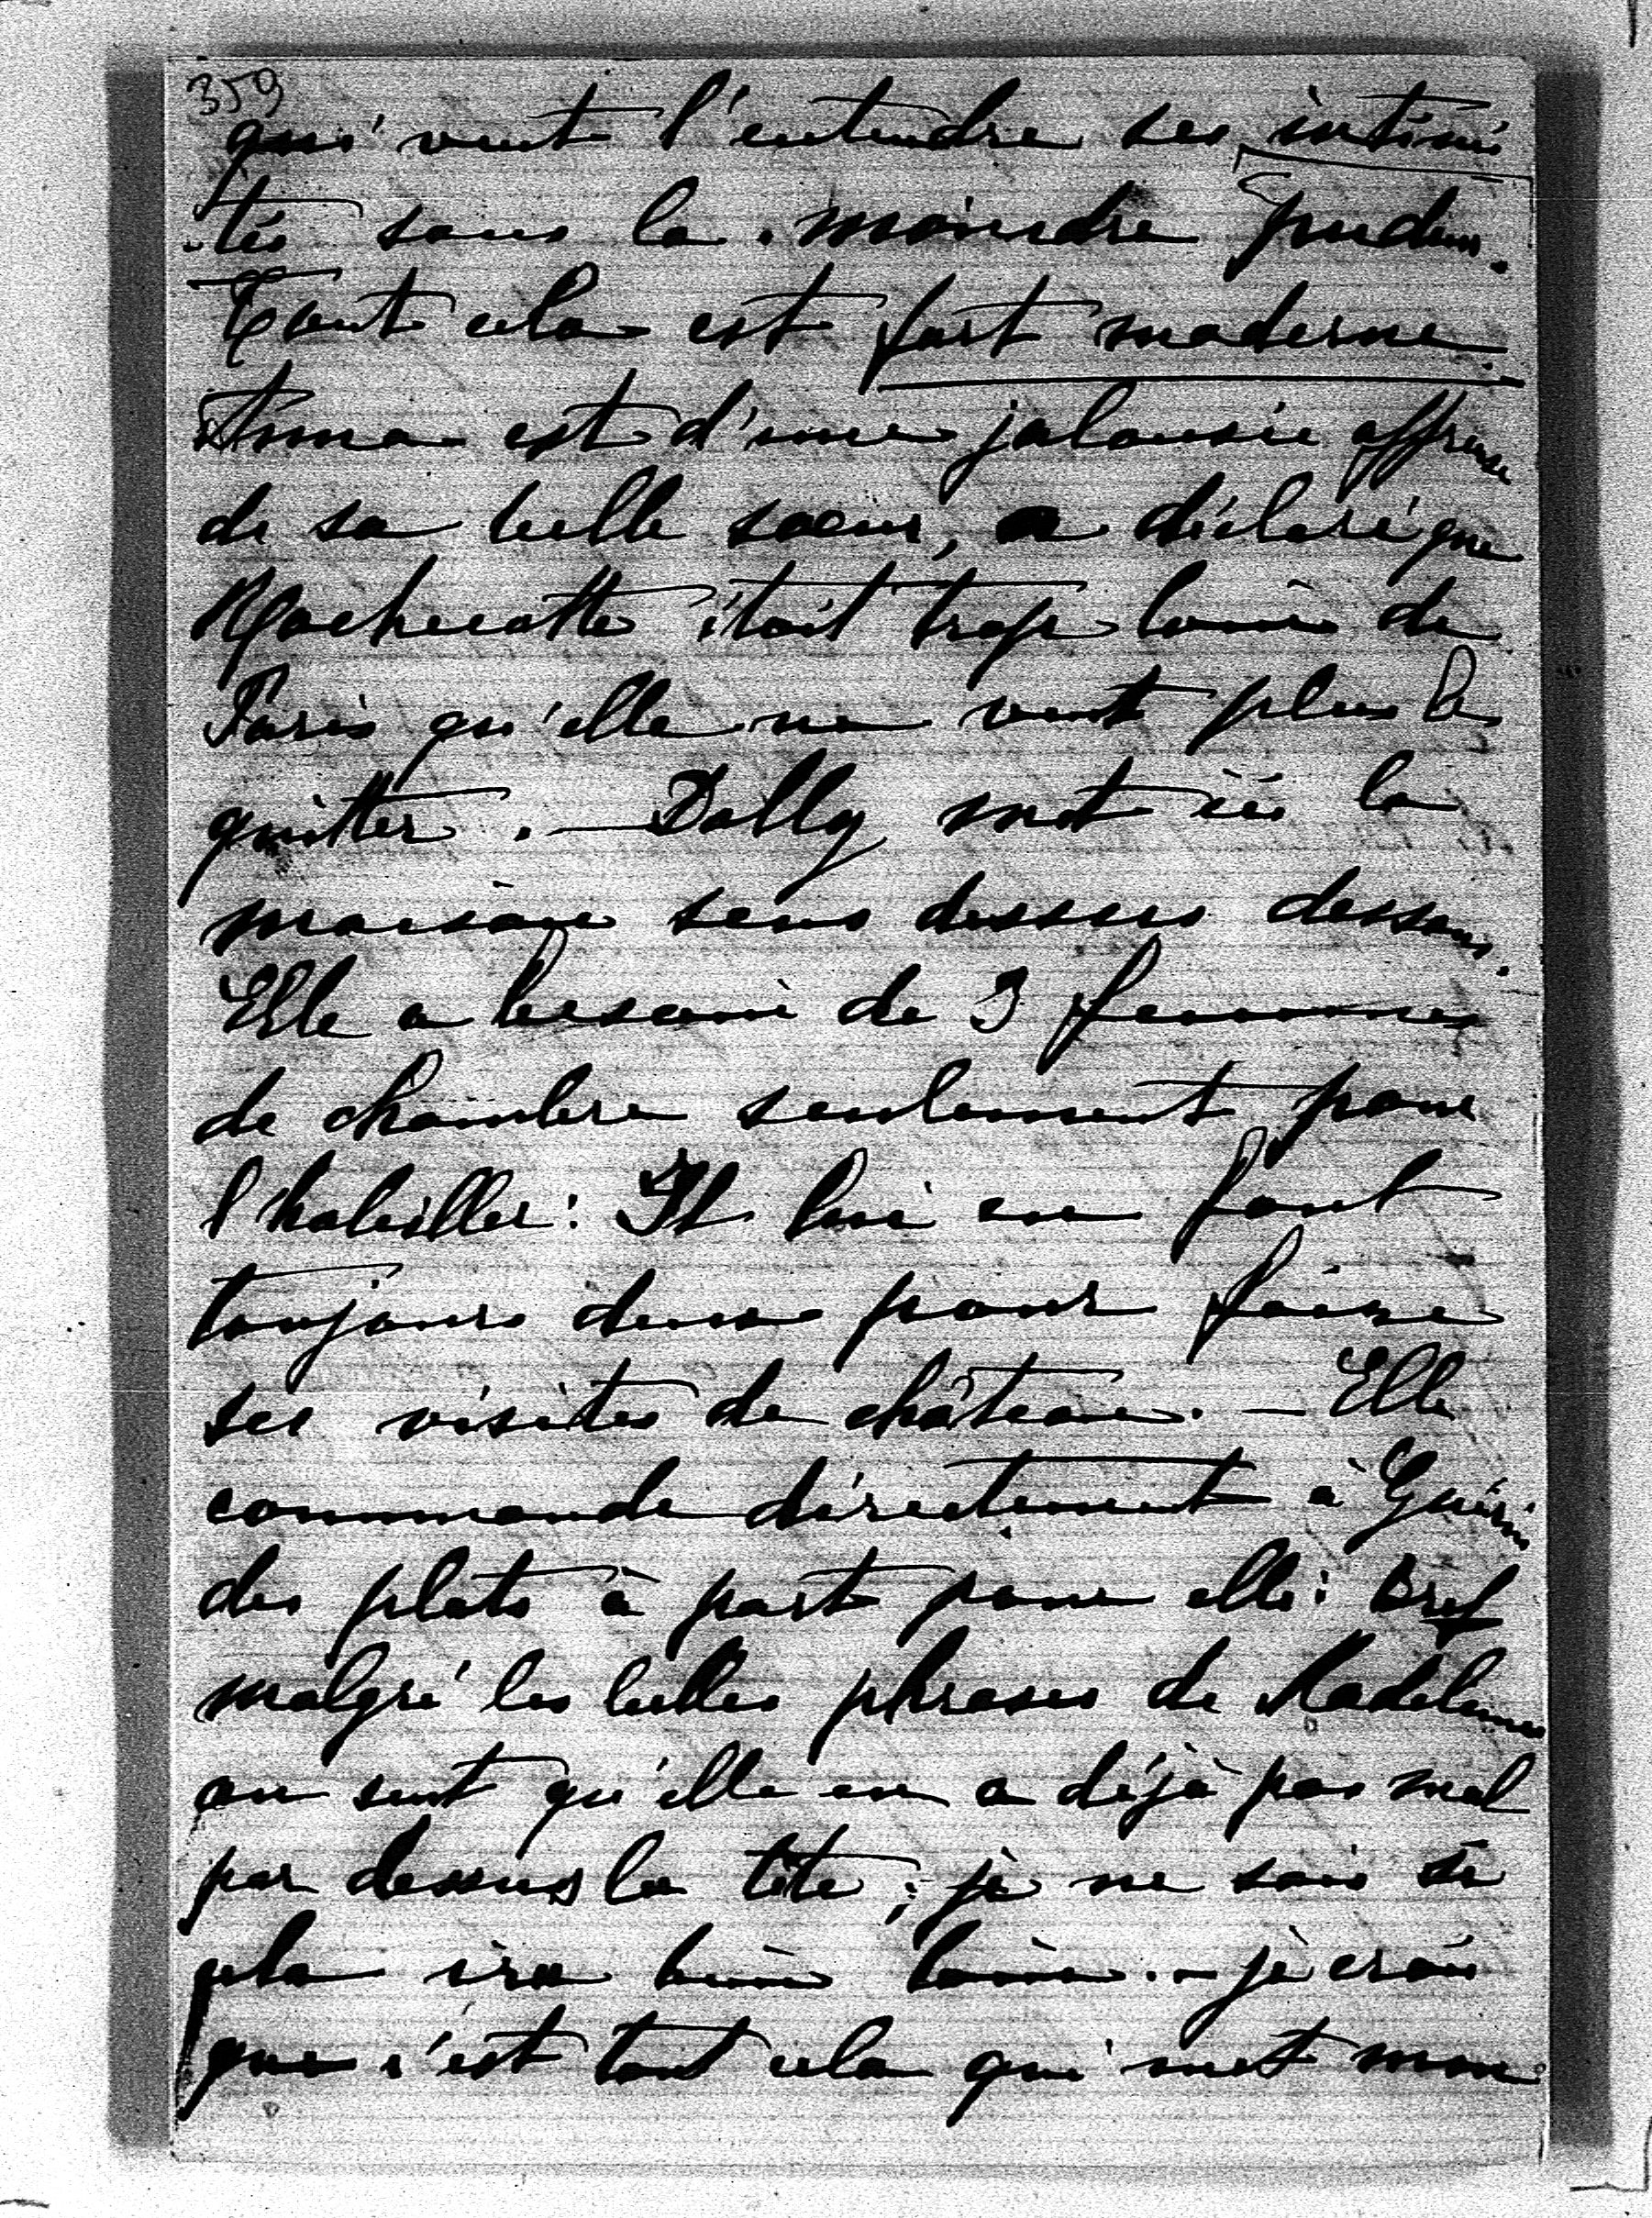 359
qui veut l'entendre ses intimi
tés sans la moindre pudeur.
Tout cela est fort moderne.
Anna est d'une jalousie affreuse
de sa belle soeur, a déclaré que
Rochecotte était trop loin de
Paris qu'elle ne veut plus le
quitter. — Dolly met ici la
maison sens dessus dessous.
Elle a besoin de 3 femmes
de chambre seulement pour
l'habiller: Il lui en faut
toujours deux pour faire
ses visites de château. — Elle
commande directement à Guérin
des plats à part pour elle: Bref
malgré les belles phrases de Madeleine
on sent qu'elle en a déjà pas mal
par dessus la tête; je ne sais si
cela ira bien loin. — je crois
que c'est tout cela qui met mon